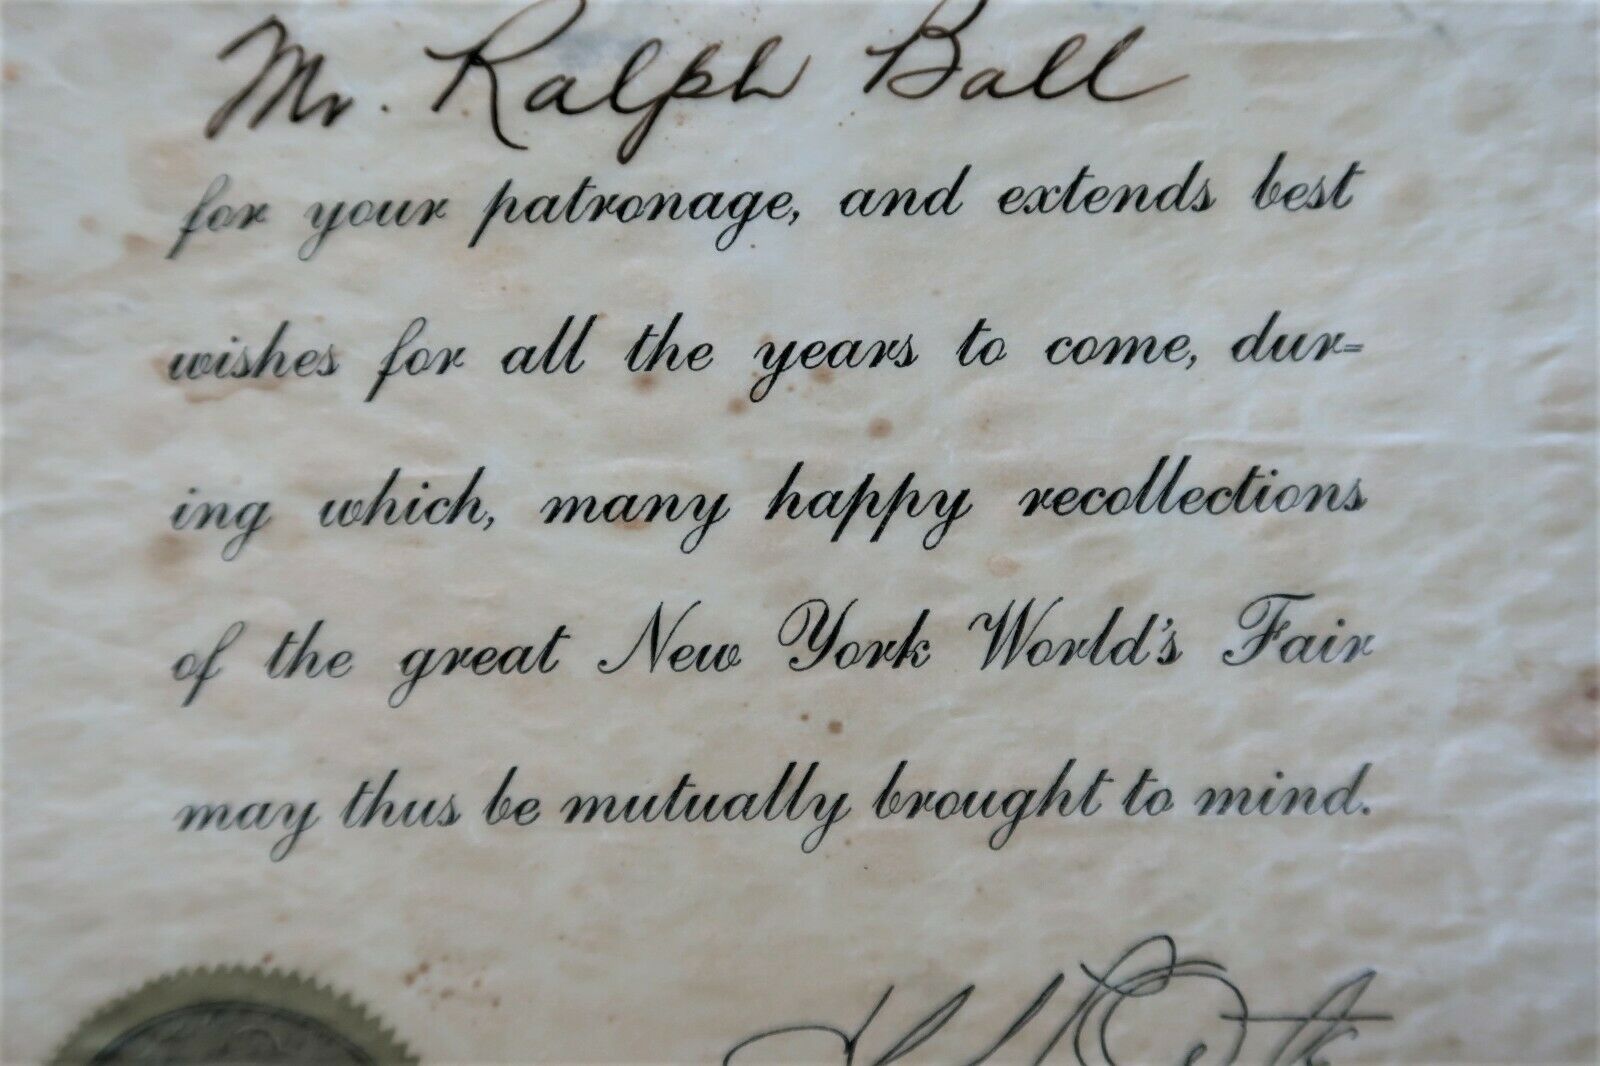 Mr. Ralph Ball
for your patronage, and extends best
wishes for all the years to come, dur=
ing which, many happy recollections
of the great New York World's Fair
may thus be mutually brought to mind.